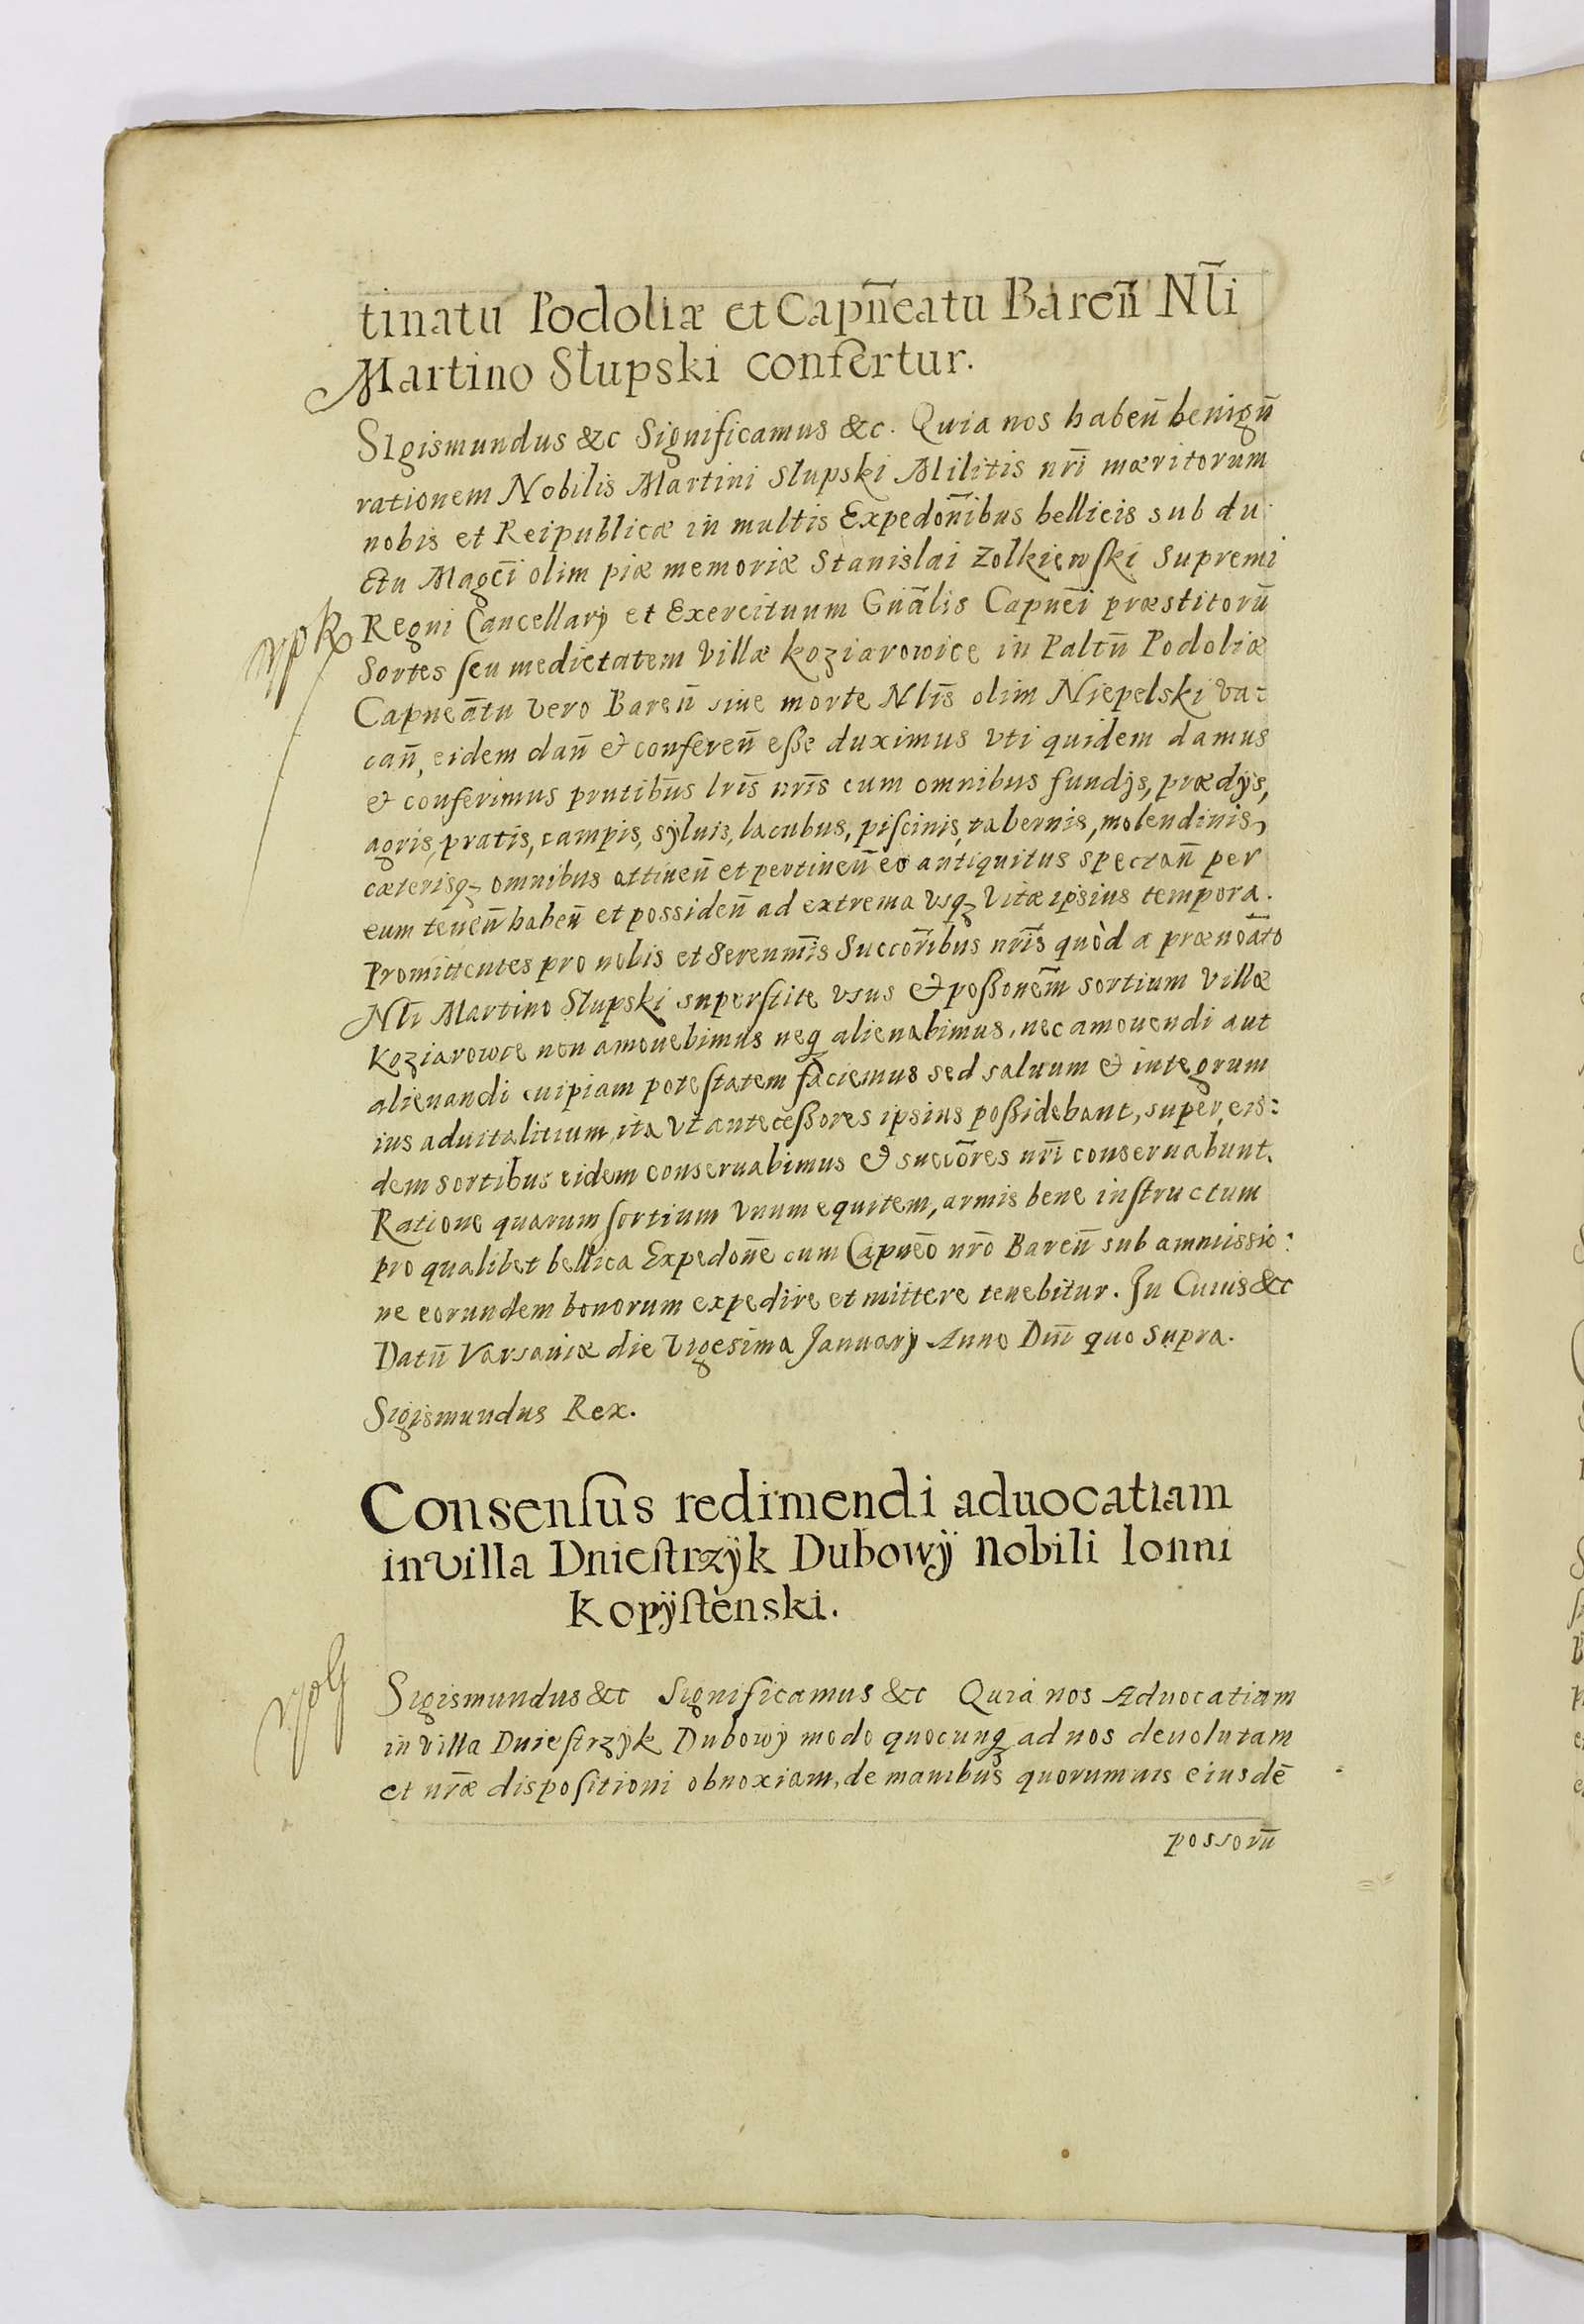 tinatu Podoliæ et Capn̄eatu Baren̄ Nl̄i
Martino Słupski confertur.
SIgismundus &c Significamus &c. Quia nos haben̄ benign̄
rationem Nobilis Martini Słupski Militis nr̄i mæritorum
nobis et Reipublicæ in multis Expedon̄ibus bellicis sub du
ctu Magc̄i olim piæ memoriæ Stanislai Zolkiewſki Supremi
Regni Cancellarij et Exercituum Gnālis Capnēi præstitorū
Sortes ſeu medietatem Villæ Koziarowice in Paltn̄ Podoliæ
Capneātu vero Baren̄ siue morte Nlīs olim Niepelski va:
can̄, eidem dan̄ & conferen̄ eße duximus vti quidem damus
& conferimus pn̄tibus lrīs nrīs cum omnibus fundjs, prædijs,
agris, pratis, campis, syluis, lacubus, piſcinis, tabernis, molendinis,
cæterisqꝫ omnibus attinen̄ et pertinen̄ eo antiquitus spectan̄ per
eum tenen̄ haben̄ et possiden̄ ad extrema vsqꝫ vitæ ipsius tempora.
Promittentes pro nobis et Serenmīs Succorībus nrīs quòd a prænoāto
Nlī Martino Słupski superſtite vsus & poßonem̄ sortium Villæ
Koziarowce non amouebimus neqꝫ alienabimus, nec amouendi aut
alienandi cuipiam poteſtatem faciemus sed saluum & integrum
ius aduitalitium, ita vt anteceßores ipsius poßidebant, super eis:
dem sortibus eidem conseruabimus & succōres nrī conseruabunt.
Ratione quarum ſortium vnum equitem, armis bene inſtructum
pro qualibet bellica Expedon̄e cum Capnēo nrō Baren̄ sub ammissio:
ne eorundem bonorum expedire et mittere tenebitur. In Cuius &c
Datn̄ Varsaviæ die Vigesima Januarij Anno Dnī quo supra.
Sigismundus Rex.
Consenſus redimendi aduocatiam
in villa Dnieſtrzÿk Dubowÿ nobili Ionni
Kopÿſtènski.
Sigismundus &c Significamus &c Quia nos Aduocatiam
in Villa Dnieſtrzyk Dubowy modo quocunqꝫ ad nos deuolutam
et nrǣ dispoſitioni obnoxiam, de manibus quorumuis eiusdē
possorū